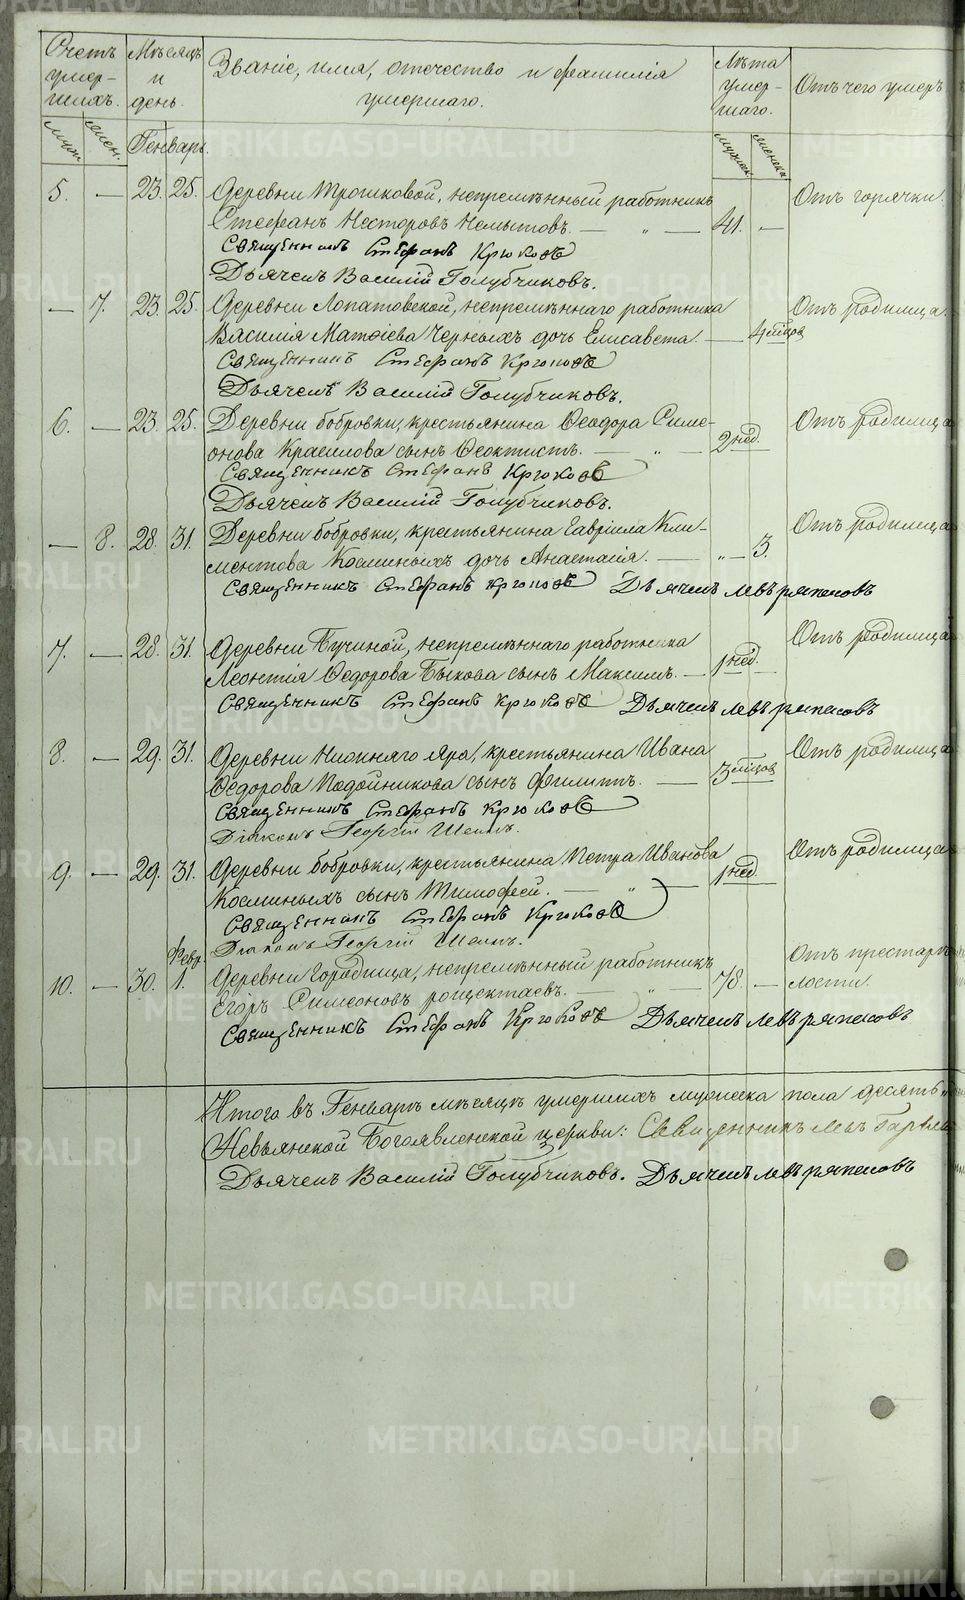 Счетъ умер-шихъ.
Мѣсяцъ и день.
Званіе, имя, отечество и фамилія умершаго.
Лѣта умер-шаго.
Отъ чего умеръ
муж. жен. Генварь. мужеск. женска
5. — 23. 25. Деревни Трошковой, непремѣнный работникъ Отъ горячки.
Стефанъ Несторовъ Немытовъ. — „ — 41. —
Священникъ Стефанъ Крюковъ
Дьячекъ Василій Голубчиковъ.
— 7. 23. 25. Деревни Лопатовской, непремѣннаго работника Отъ родимца.
Василія Матѳіева Черныхъ дочь Елисавета. — 4 мѣсяц
Священникъ Стефанъ Крюковъ
Дьячекъ Василій Голубчиковъ.
6. — 23. 25. Деревни бобровки, крестьянина Ѳеодора Симе- Отъ родимца
онова Красилова сынъ Ѳеоктистъ. — „ — 2 нед.
Священникъ Стефанъ Крюковъ
Дьячекъ Василій Голубчиковъ.
— 8. 28. 31. Деревни бобровки, крестьянина Гавріила Кли- Отъ родимца
ментова Косминыхъ дочь Анастасія. — „ — 3.
Священникъ Стефанъ Крюковъ Дьячекъ Левъ
7. — 28. 31. Деревни Бучиной, непремѣннаго работника Отъ родимца
Леонтія Ѳедорова Быкова сынъ Максимъ. — 1 нед.
Священникъ Стефанъ Крюковъ Дьячекъ Левъ
8. — 29. 31. Деревни Нижняго Яра, крестьянина Ивана Отъ родимца
Ѳедорова Подойникова сынъ Филиппъ. — 3 мѣсяц
Священникъ Стефанъ Крюковъ
Діаконъ Георгій
9. — 29. 31. Деревни бобровки, крестьянина Петра Иванова Отъ родимца
Косминыхъ сынъ Тимофей. — „ — 1 нед.
Священникъ Стефанъ Крюковъ
Діаконъ Георгій
Февр.
10. — 30. 1. Деревни Городища, непремѣнный работникъ Отъ престарѣ
Егоръ Симеоновъ — „ — 78. — лости.
Священникъ Стефанъ Крюковъ Дьячекъ Левъ
Итого въ Генварѣ мѣсяцѣ умершихъ мужеска пола десять
Невьянской Богоявленской церкви: Священникъ Левъ
Дьячекъ Василій Голубчиковъ. Дьячекъ Левъ
METRIKI.GASO-URAL.RU